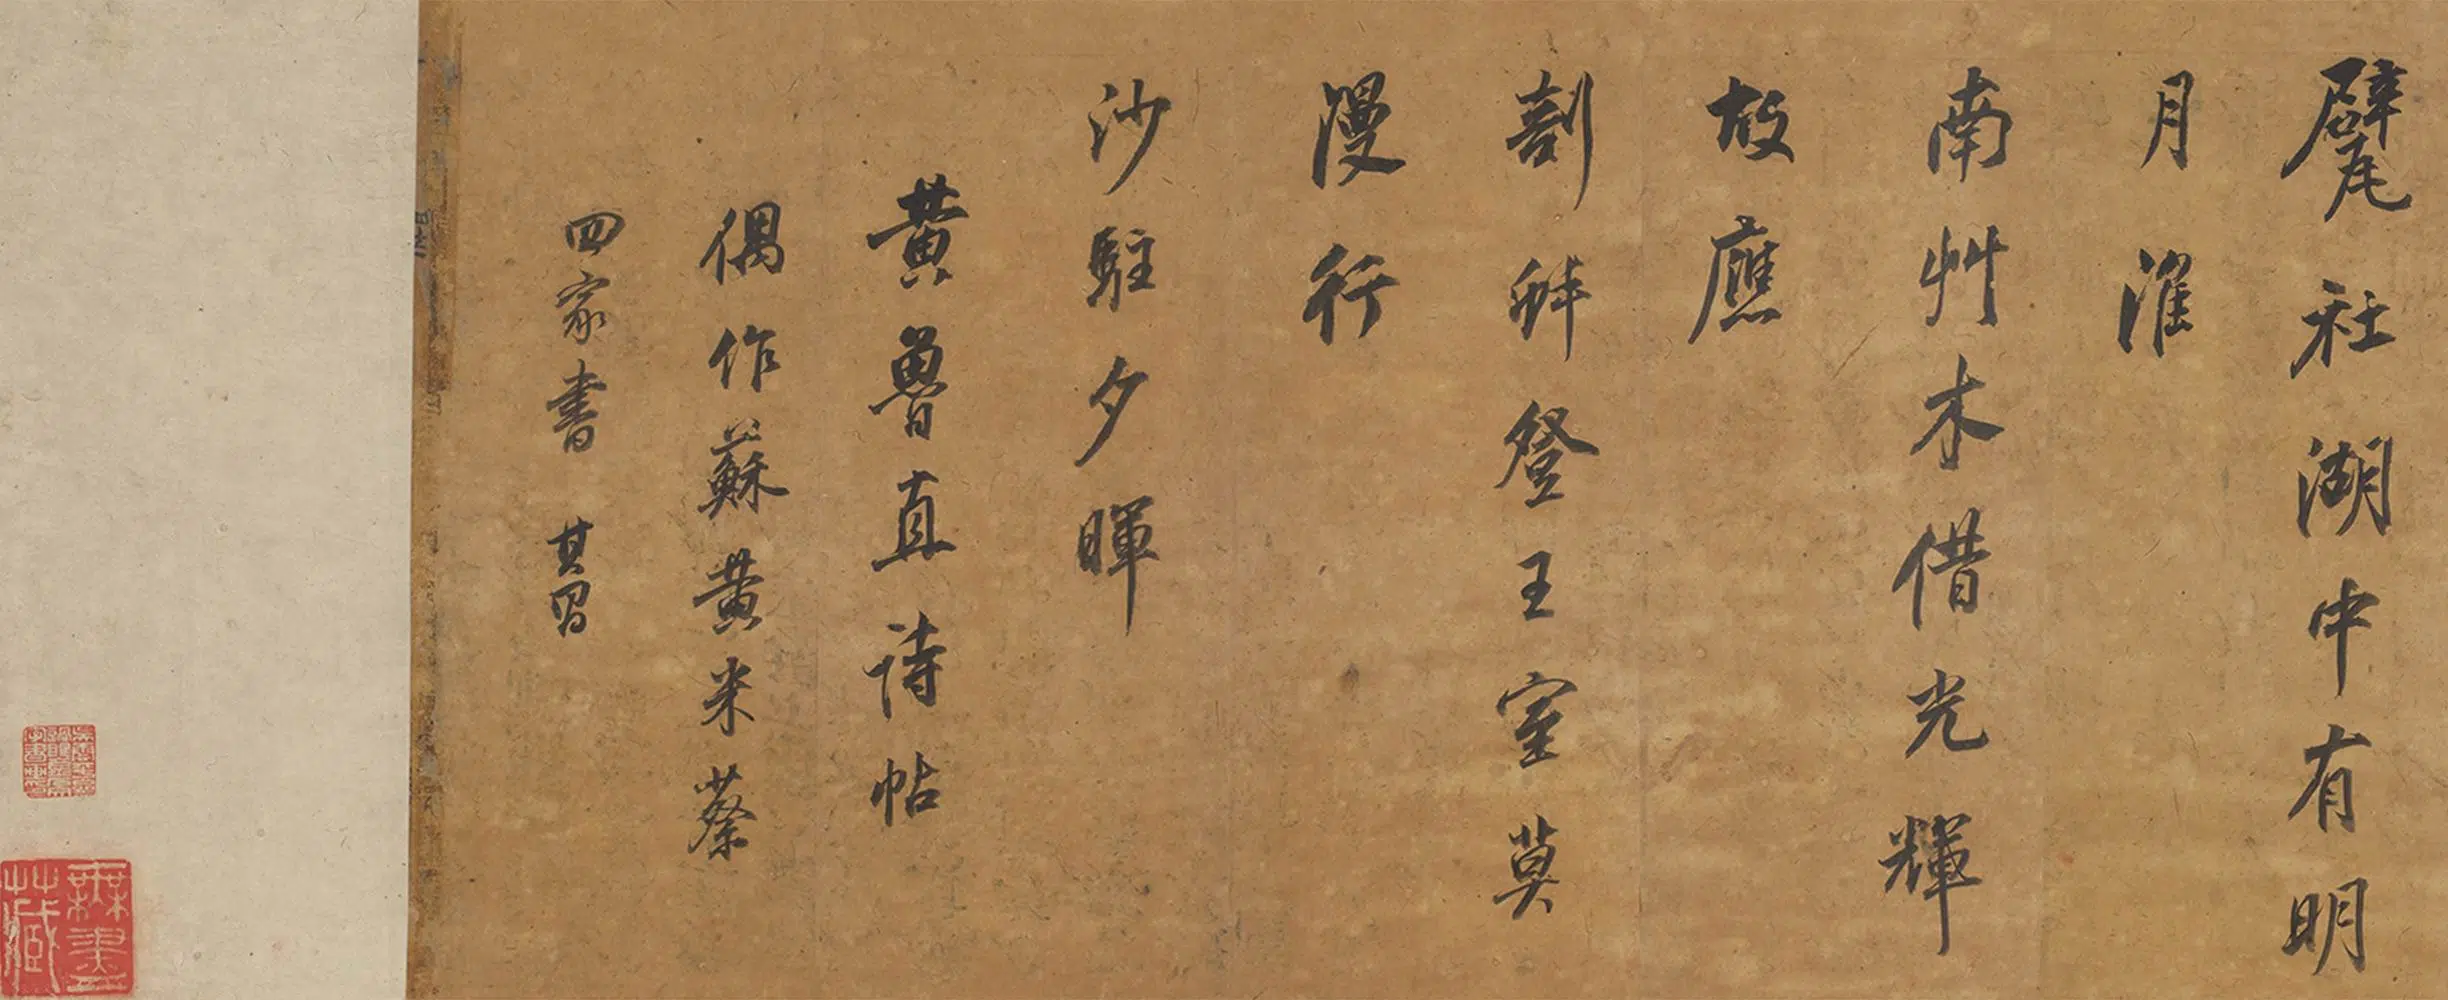 甓社湖中有明
月淮
南艸木借光輝
故應
剖蚌登王室莫
漫行
沙駐夕暉
黄魯直詩帖
偶作蘇黄米蔡
四家書 其昌